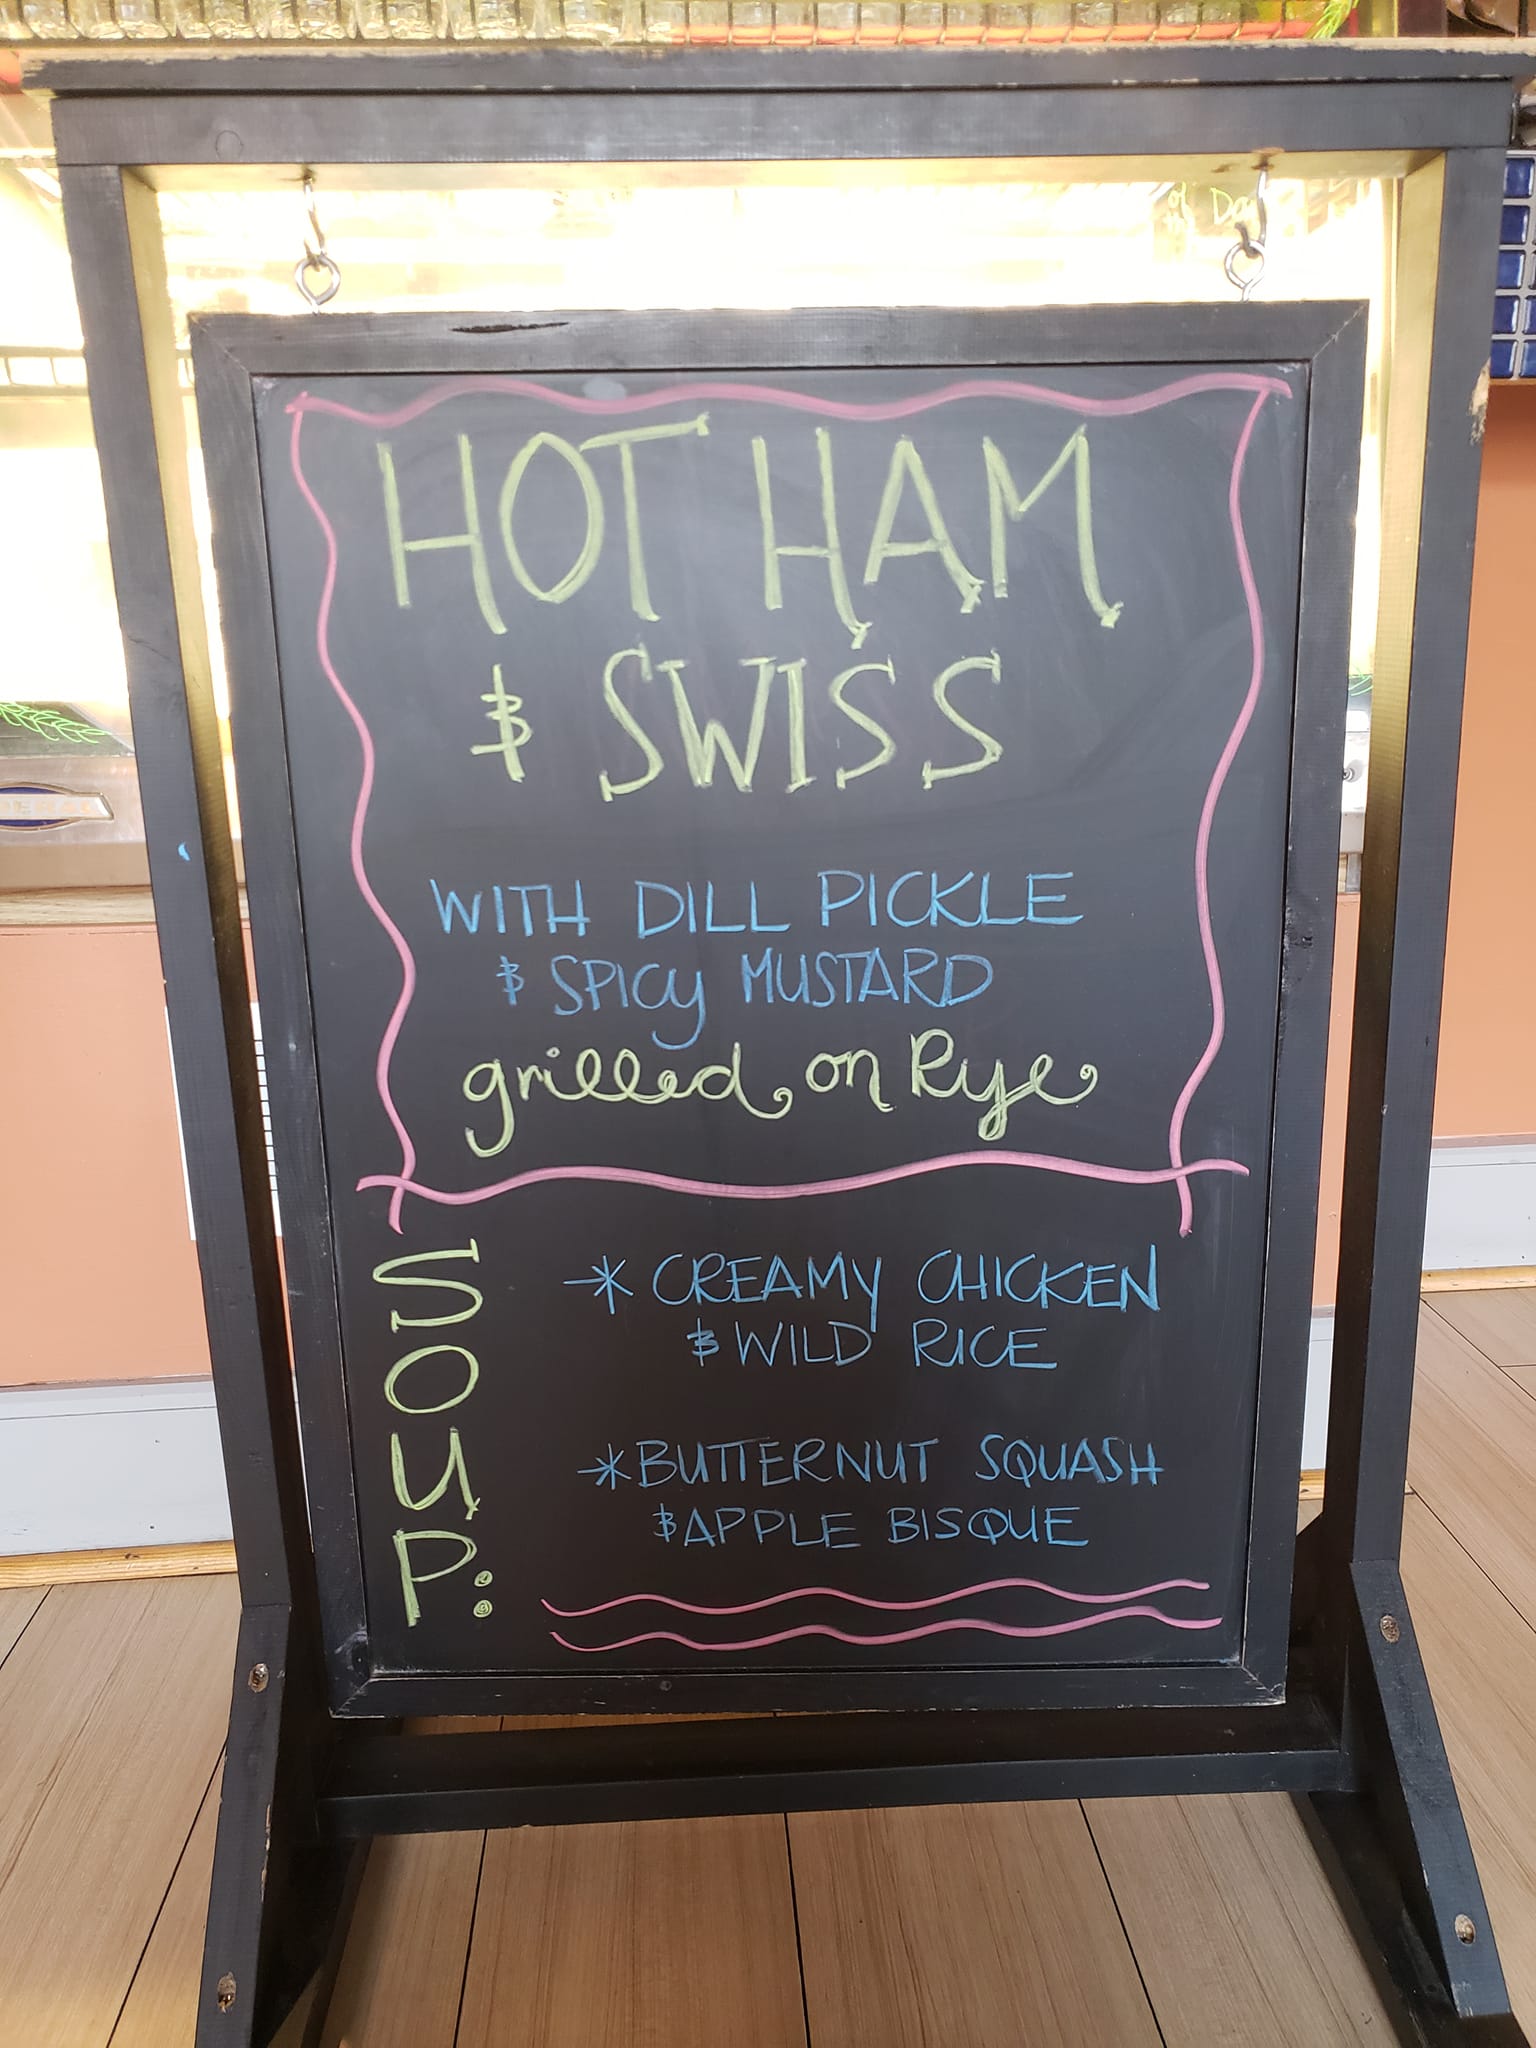 HOT HAM
& SWISS
WITH DILL PICKLE
& SPICY MUSTARD
grilled on Rye
SOUP:
* CREAMY CHICKEN
& WILD RICE
* BUTTERNUT SQUASH
& APPLE BISQUE